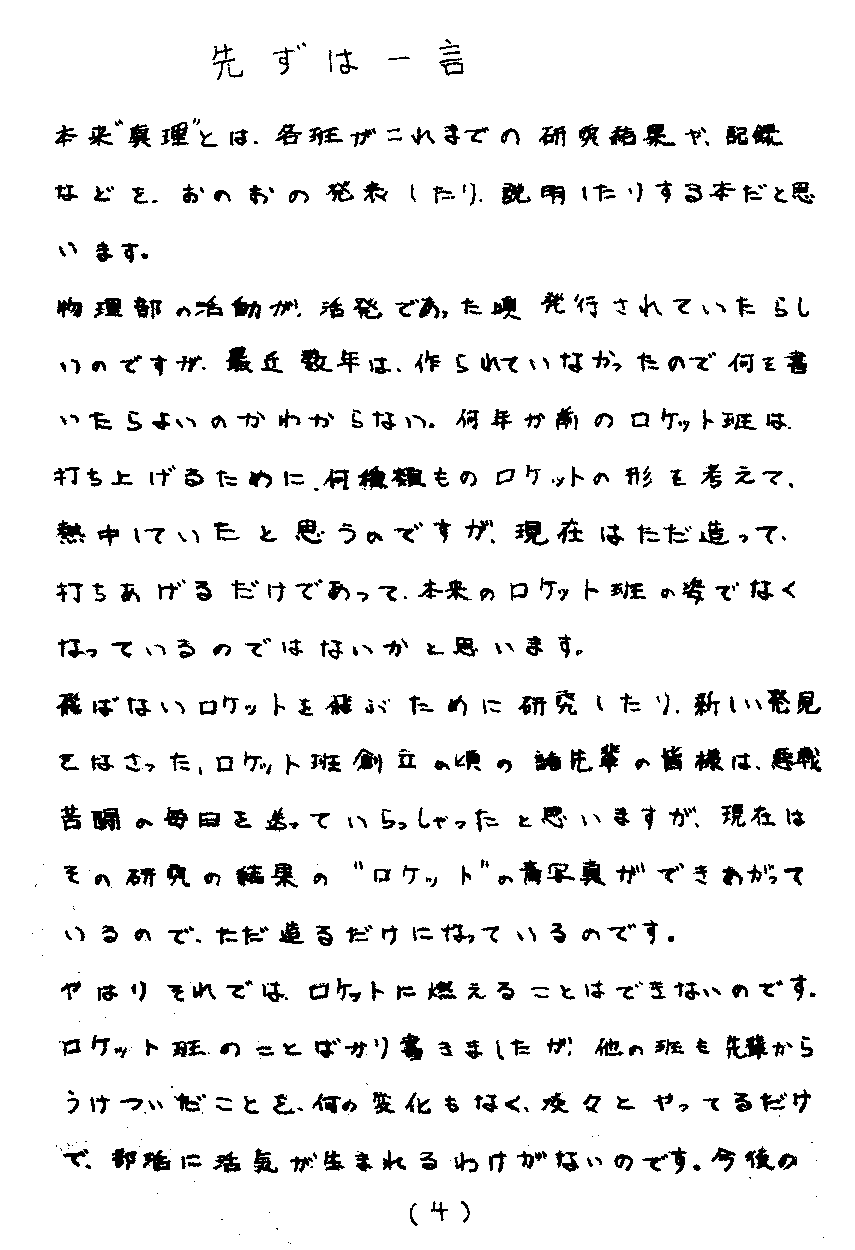 先ずは一言
本来"真理"とは、各班がこれまでの研究結果や、記録
などを、おのおの発表したり、説明したりする本だと思
います。
物理部の活動が、活発であった頃発行されていたらし
いのですが、最近数年は、作られていなかったので何を書
いたらよいのかわからない。何年か前のロケット班は、
打ち上げるために、何機種ものロケットの形を考えて、
熱中していたと思うのですが、現在はただ造って、
打ちあげるだけであって、本来のロケット班の姿でなく
なっているのではないかと思います。
飛ばないロケットを飛ぶために研究したり、新しい発見
をなさった、ロケット班創立の頃の諸先輩の皆様は、悪戦
苦闘の毎日を送っていらっしゃったと思いますが、現在は
その研究の結果の"ロケット"の青写真ができあがって
いるので、ただ造るだけになっているのです。
やはりそれでは、ロケットに燃えることはできないのです。
ロケット班のことばかり書きましたが、他の班も先輩から
うけついだことを、何の変化もなく、淡々とやってるだけ
で、部活に活気が生まれるわけがないのです。今後の
(4)